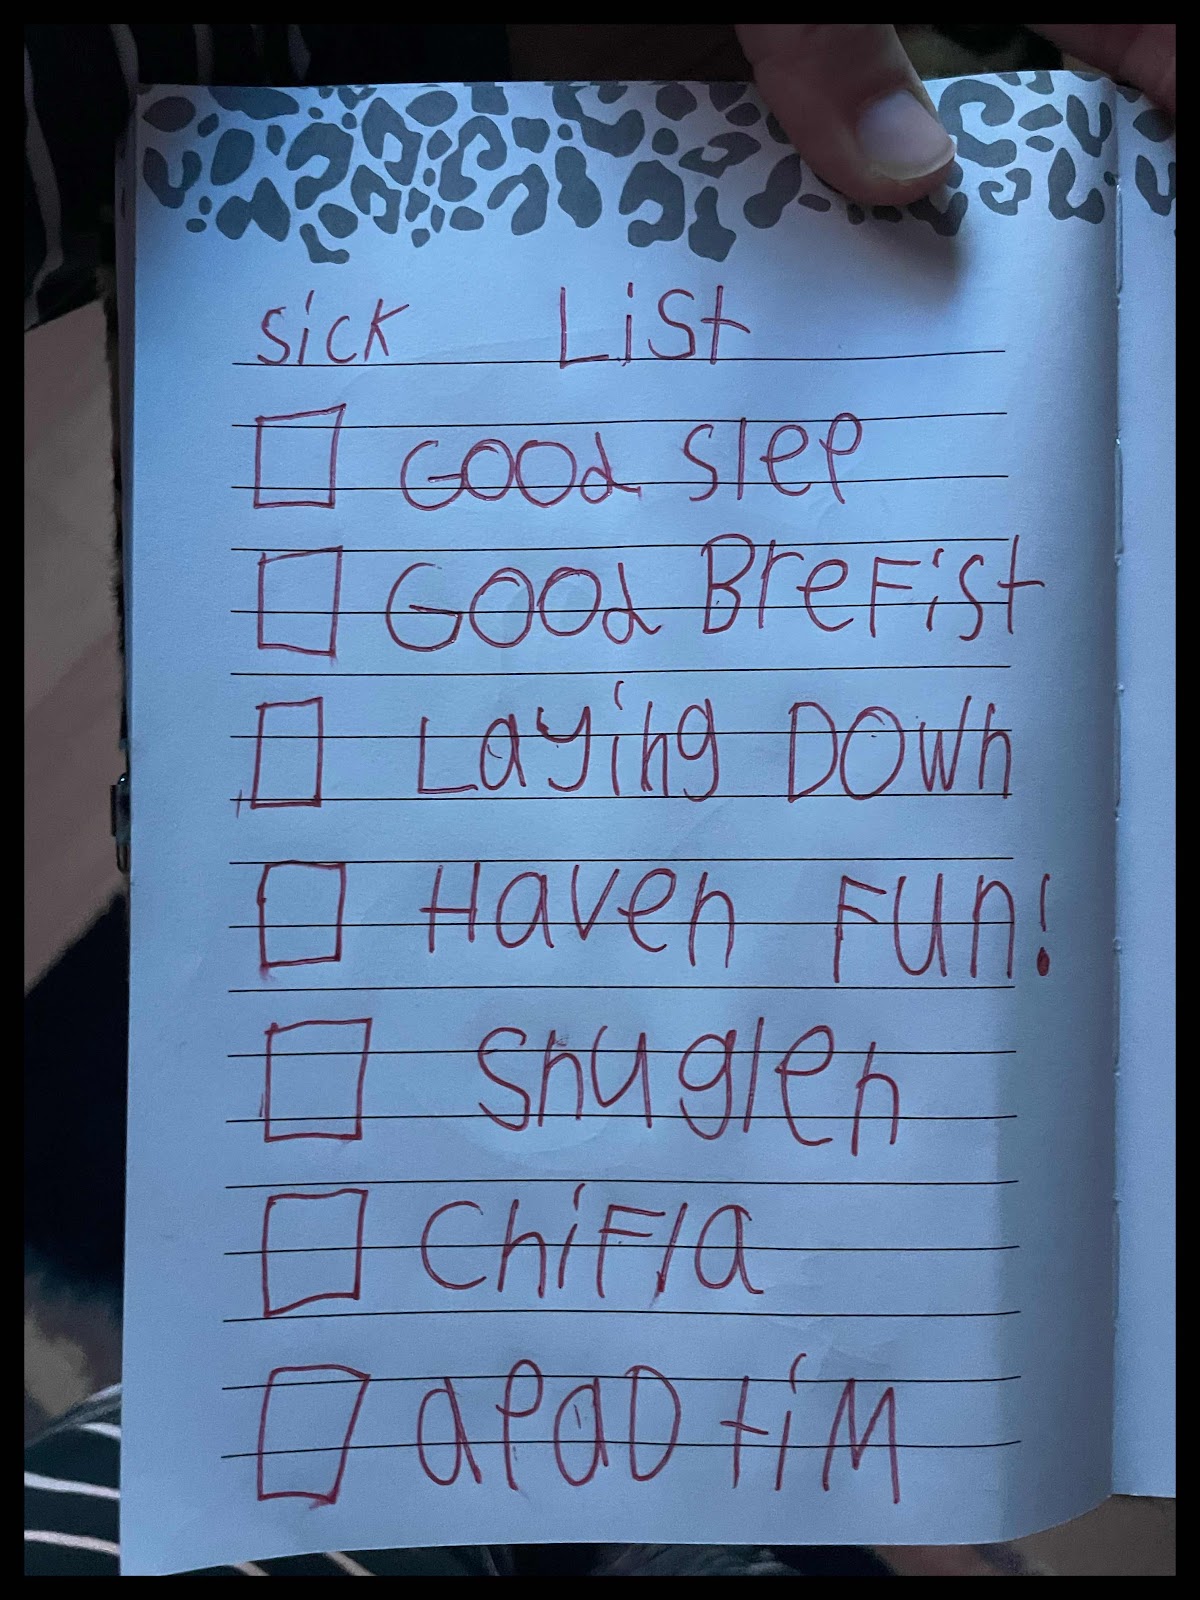 Sick List
Good Slep
Good BreFist
Laying Down
Haven Fun!
Snuglen
ChiFla
aPaD tiM